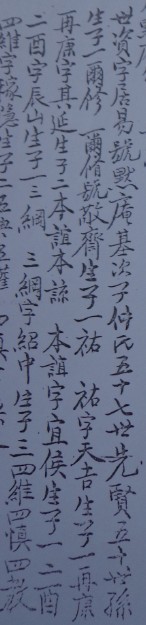 世资字居易號默庵基次子仲氏五十七世先賢五十世孫
生子一爾修　爾修號敬齊生子一祐　祐字天吉生子一再康
再康字其延生子二本誼本諒　本誼字宜侯生子一二酉
二酉字辰山生子一三綱　三綱字紹中生子三四維四慎四教
四維字 生子二五